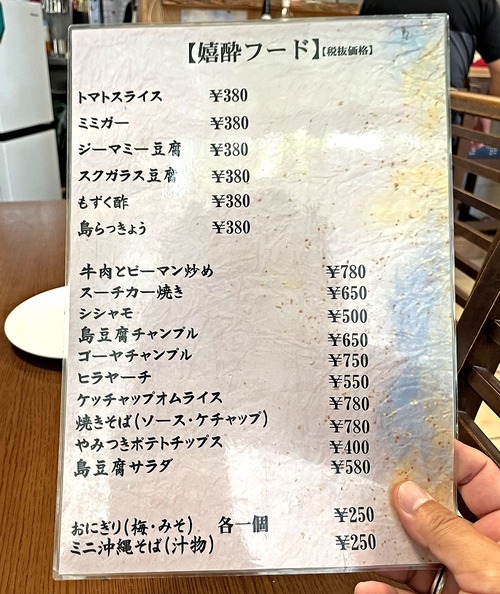 【嬉酔フード】【税抜価格】
トマトスライス ¥380
ミミガー ¥380
ジーマミー豆腐 ¥380
スクガラス豆腐 ¥380
もずく酢 ¥380
島らっきょう ¥380
牛肉とピーマン炒め ¥780
スーチカー焼き ¥650
シシャモ ¥500
島豆腐チャンプル ¥650
ゴーヤチャンプル ¥750
ヒラヤーチ ¥550
ケッチャップオムライス ¥780
焼きそば(ソース・ケチャップ) ¥780
やみつきポテトチップス ¥400
島豆腐サラダ ¥580
おにぎり(梅・みそ) 各一個 ¥250
ミニ沖縄そば(汁物) ¥250